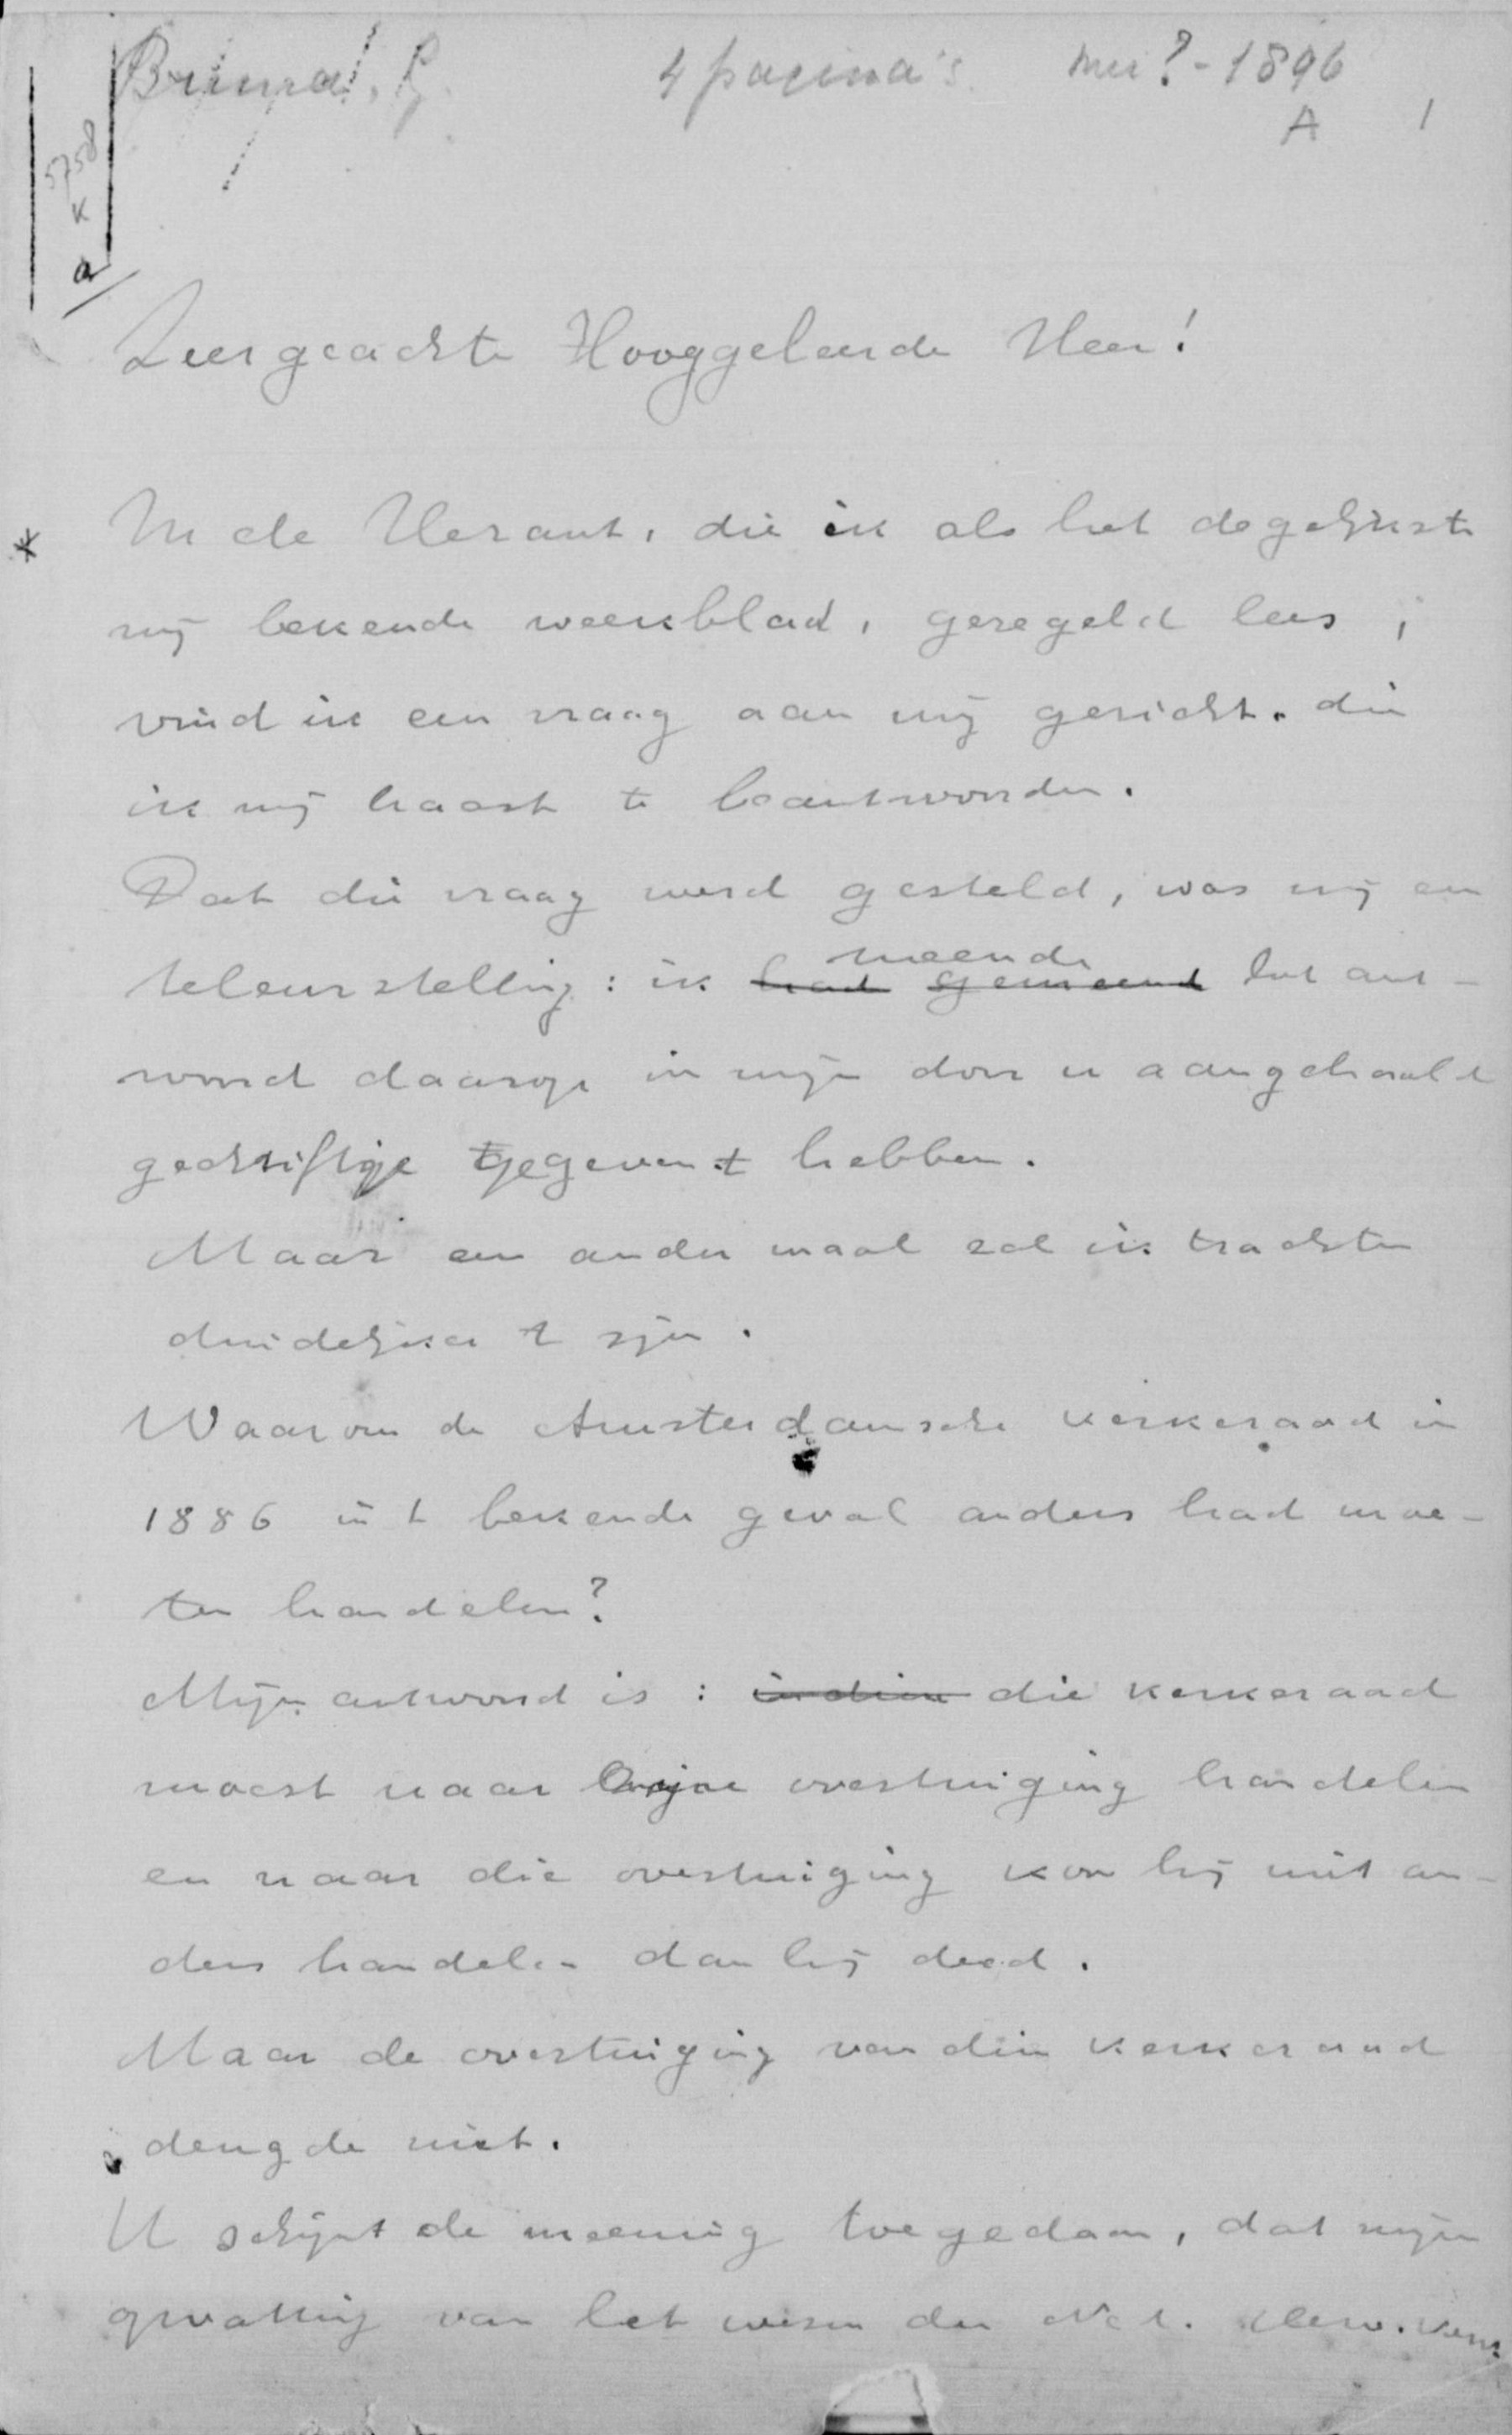 Bruma, G. 4 pagina's mei? - 1896
A 1
5758
K
a
Zeergeachte Hooggeleerde Heer!
* In de Heraut, die ik als het degelijkste
mij bekende weekblad, geregeld lees,
vind ik een vraag aan mij gericht, die
ik mij haast te beantwoorden.
Dat die vraag werd gesteld, was mij een
meende
teleurstelling: ik had gemeend het ant-
woord daarop in mijn door u aangehaald
geschriftje gegeven te hebben.
Maar een ander maal zal ik trachten
duidelijker te zijn.
Waarom de Amsterdamsche kerkeraad in
1886 in 't bekende geval anders had moe-
ten handelen?
Mijn antwoord is: indien die kerkeraad
moest naar zijne overtuiging handelen
en naar die overtuiging kon hij niet an-
ders handelen dan hij deed.
Maar de overtuiging van dien kerkeraad
deugde niet.
U schijnt de meening toegedaan, dat mijn
opvatting van het wezen der Ned. Herv. Kerk